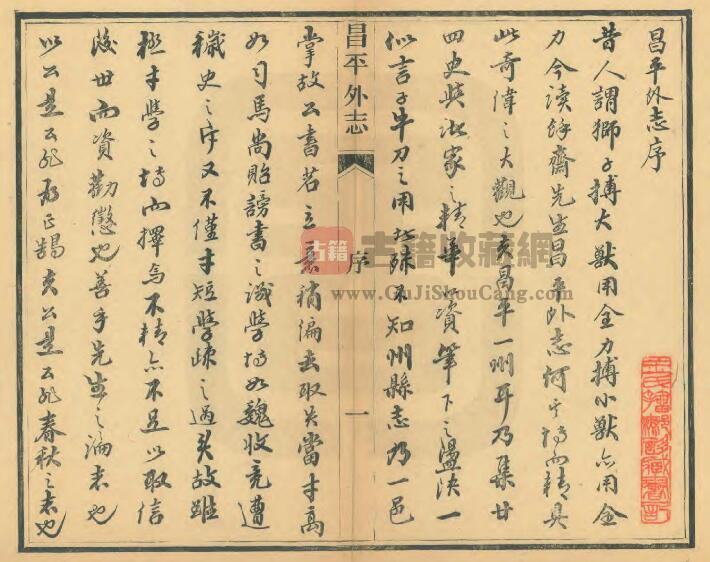 昌平外志序
昔人謂獅子搏大獸用全力搏小獸亦用全
力今讀齋先生昌平外志何其博而精具
此奇偉之大觀也夫昌平一州耳乃集廿
四史與家之精華以資筆下之盪決一
似言子牛刀之用殊不知州縣志乃一邑
昌平外志 序 一
掌故公書若立意稍偏去取失當才高
如司馬尚貽謗書之譏學博如魏收竟遭
穢史之又不僅才短學疎之過矣故雖
極才學之博而擇焉不精亦不足以取信
後世而資勸懲也善乎先生之論志也
以公是公非為正鵠夫公是公非春秋之志也
古籍 古籍收藏網
www.GuJiShouCang.com